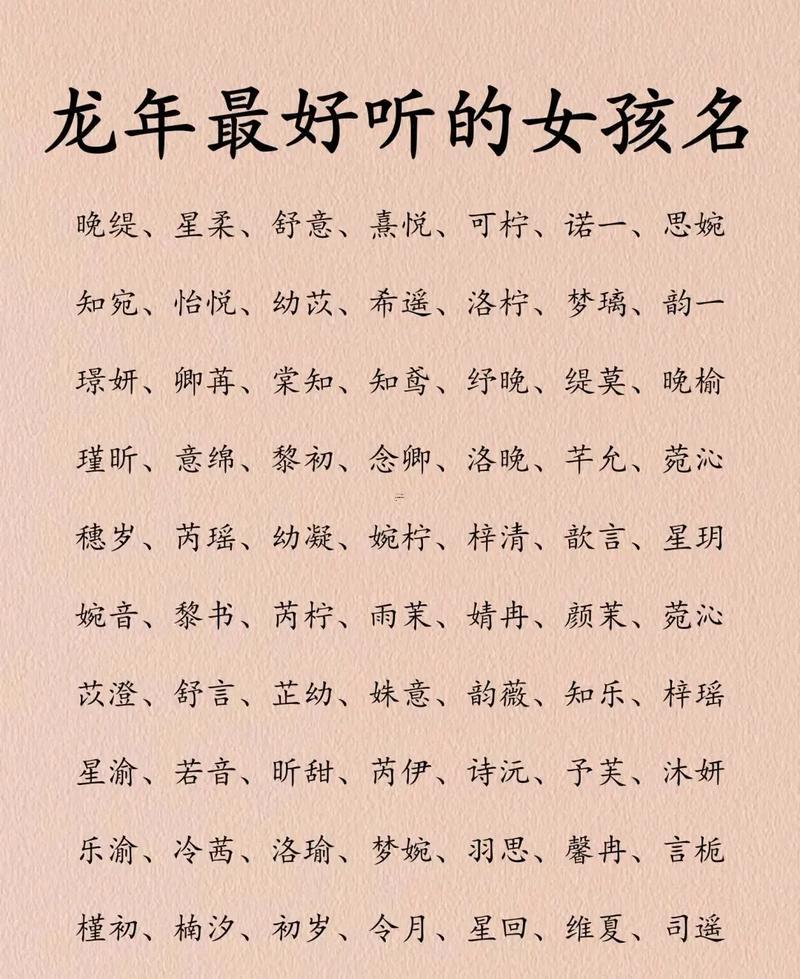 龙年最好听的女孩名
晚缇、星柔、舒意、熹悦、可柠、诺一、思婉
知宛、怡悦、幼苡、希遥、洛柠、梦璃、韵一
璟妍、卿苒、棠知、知鸢、纾晚、缇莫、晚榆
瑾昕、意绵、黎初、念卿、洛晚、芊允、菀沁
穗岁、芮瑶、幼凝、婉柠、梓清、歆言、星玥
婉音、黎书、芮柠、雨茉、婧冉、颜茉、菀沁
苡澄、舒言、芷幼、姝意、韵薇、知乐、梓瑶
星渝、若音、昕甜、芮伊、诗沅、予芙、沐妍
乐渝、冷茜、洛瑜、梦婉、羽思、馨冉、言栀
槿初、楠汐、初岁、令月、星回、维夏、司遥